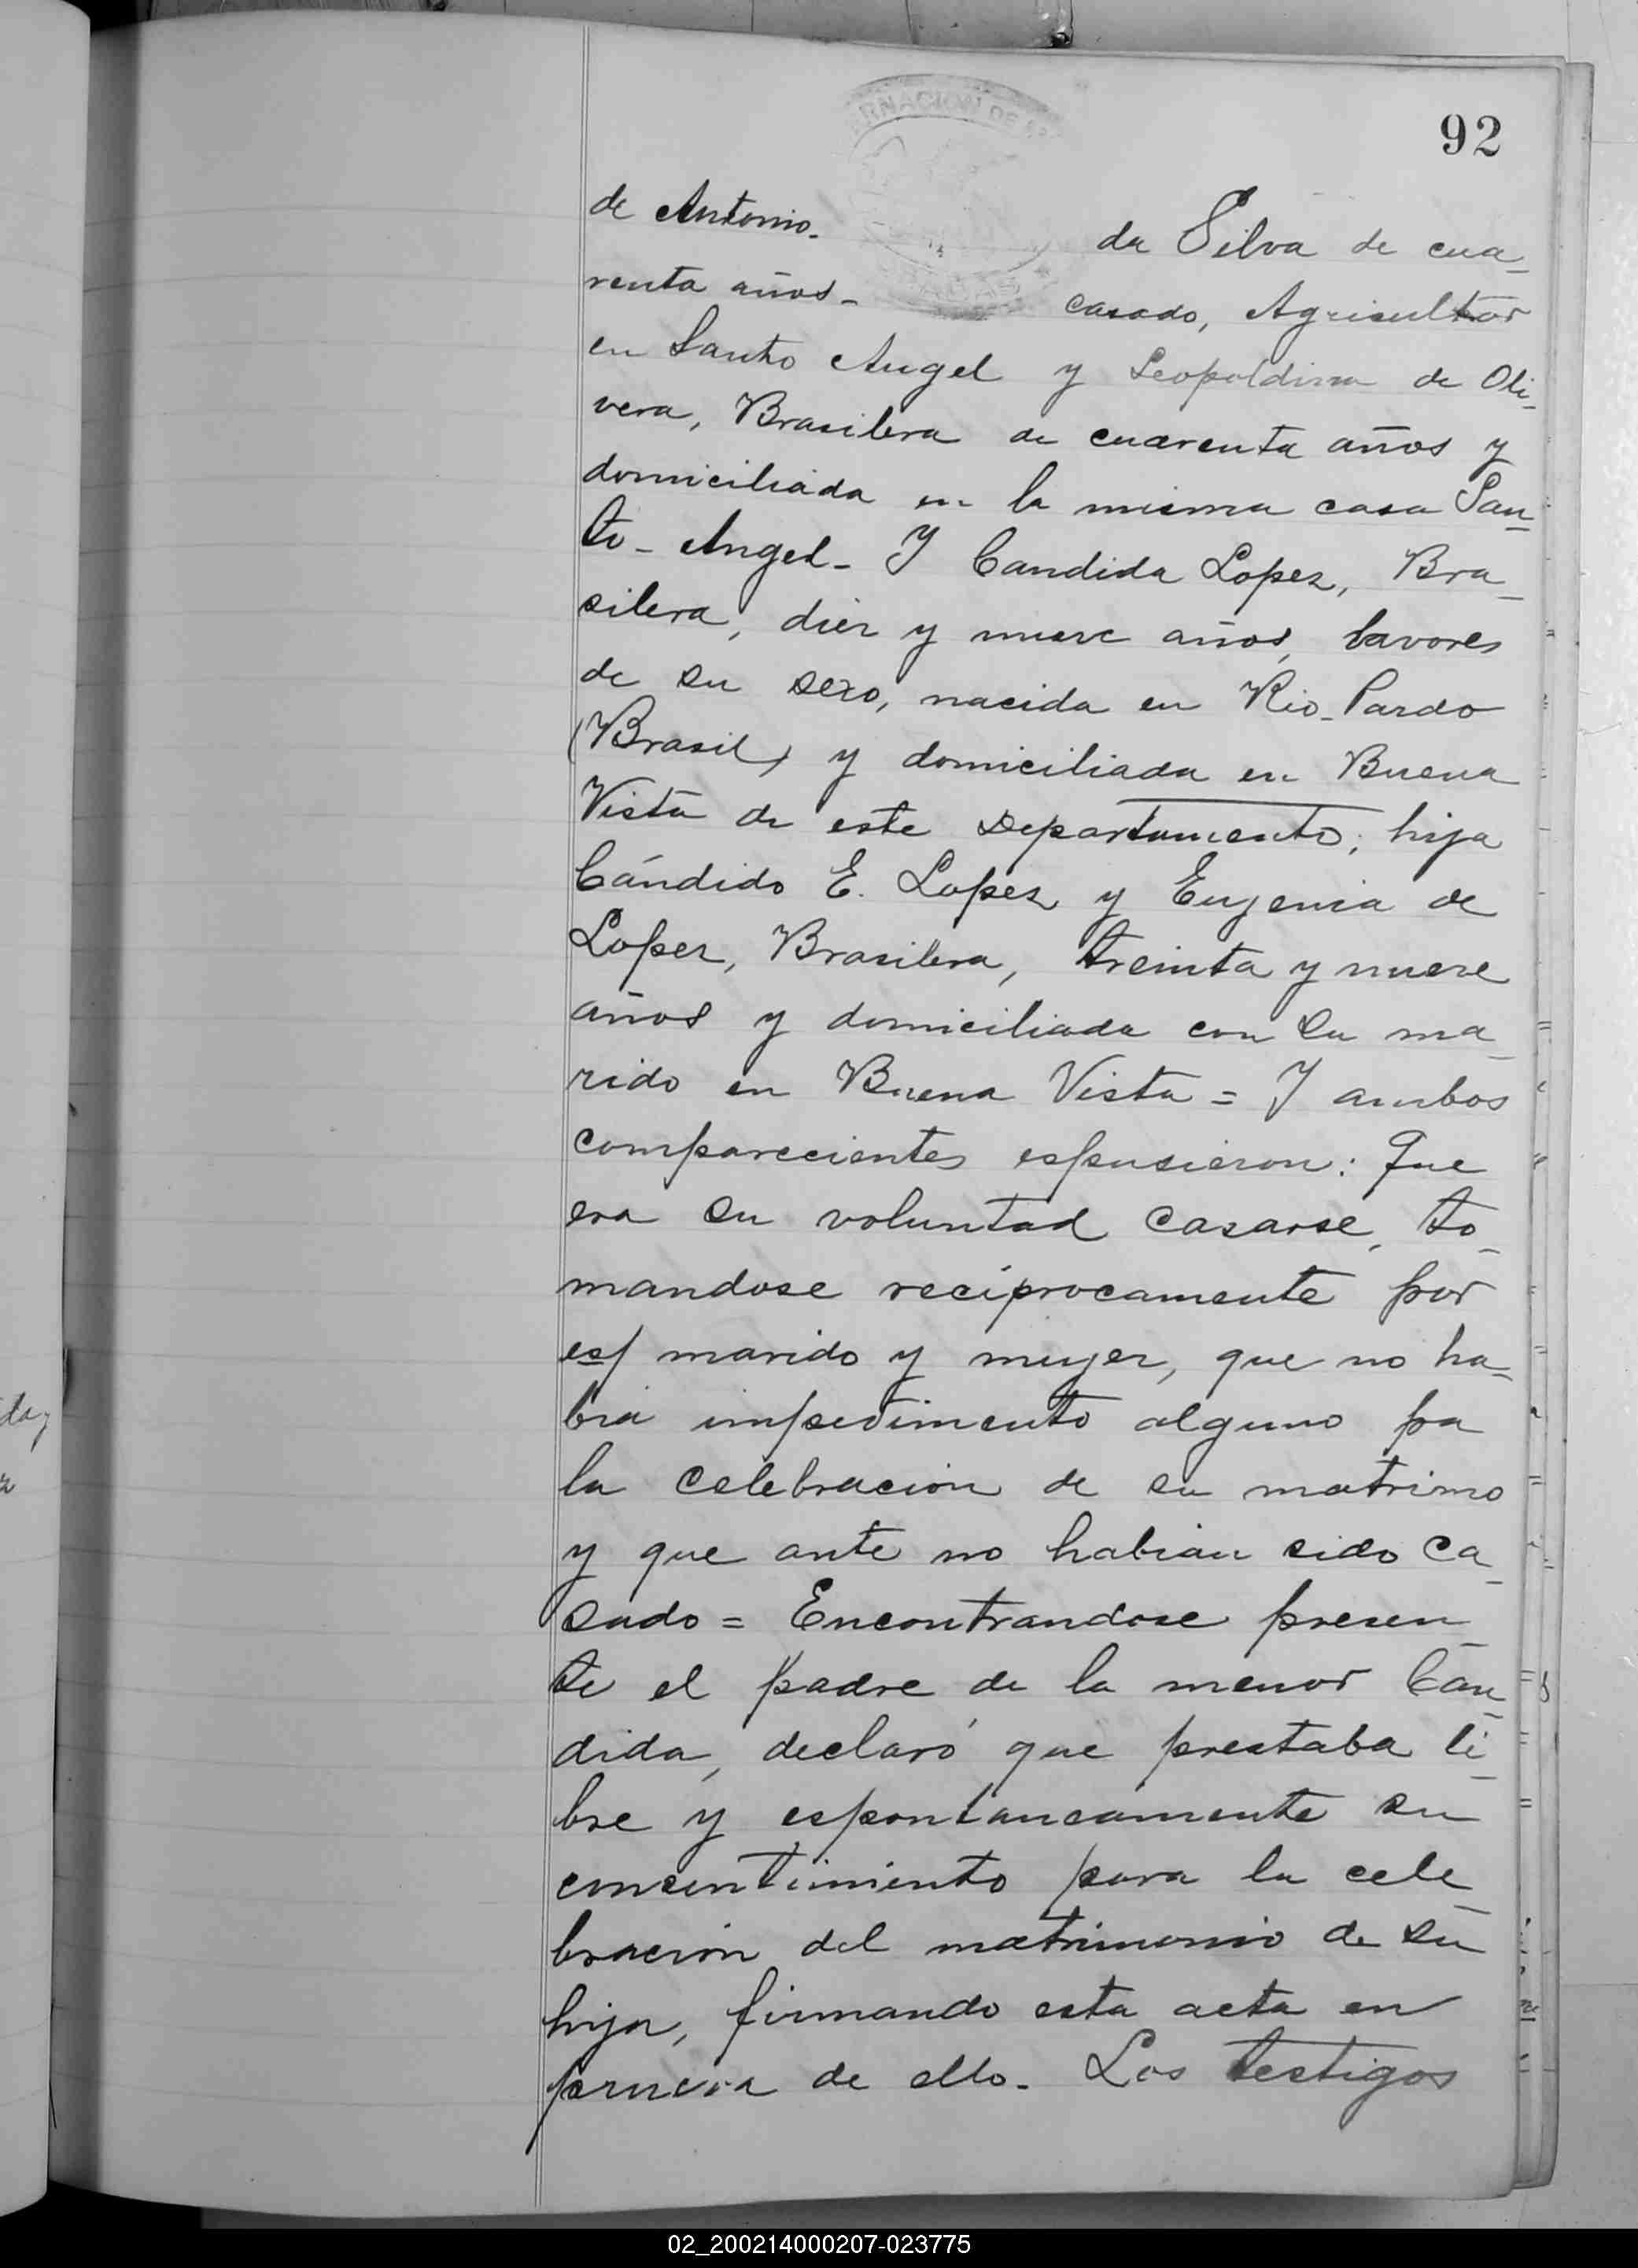 92
RNACION DE
de Antonio. da Silva de cua-
renta años- casado, Agricultor
en Santo Angel y Leopoldina de Oli-
vera, Brasilera de cuarenta años y
domiciliada en la misma casa San-
to-Angel- Y Candida Lopez, Bra-
silera, diez y nueve años, lavores
de su sexo, nacida en Rio-Pardo
(Brasil) y domiciliada en Buena
Vista de este Departamento; hija
Cándido E. Lopez y Eugenia de
Lopez, Brasilera, treinta y nueve
años y domiciliada con su ma-
rido en Buena Vista = Y ambos
comparecientes espusieron: Que
era su voluntad casarse, to-
mandose reciprocamente por
esp marido y mujer, que no ha-
bia impedimento alguno pa
la celebración de su matrimo
y que ante no habian sido ca-
sado = Encontrandose presen-
te el padre de la menor Can-
dida, declaró que prestaba li-
bre y espontaneamente su
consentimiento para la cele-
bracion del matrimonio de su
hija, firmando esta acta en
prueva de ello. Los testigos
02_200214000207-023775